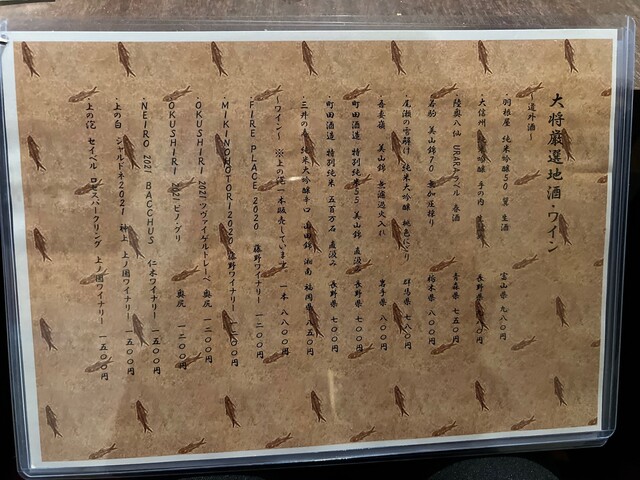 大将厳選地酒・ワイン
道外酒
・羽根屋 純米吟醸50 翼 生酒 富山県 九八〇円
・大信州 手の内 長野県
・陸奥八仙 URARAラベル 春酒 青森県 七五〇円
若駒 美山錦70 無加圧採り 栃木県 八〇〇円
・尾瀬の雪解け 純米大吟醸 桃色にごり 群馬県 七八〇円
・吾妻嶺 美山錦 無濾過火入れ 岩手県 八〇〇円
町田酒造 特別純米55 美山錦 直汲み 長野県 七〇〇円
・町田酒造 特別純米 五百万石 直汲み 長野県 七〇〇円
・三井の 純米大吟醸辛口 山田錦 福岡県 八五〇円
～ワイン～ ※上の 一本販売しています 一本 八八〇〇円
FIRE PLACE 2020 藤野ワイナリー 一二〇〇円
・MIKINOHOTORI2020 藤野ワイナリー 一二〇〇円
・OKUSHIRI 2021 ツヴァイゲルトレーベ 奥尻 一二〇〇円
OKUSHIRI 2021 ピノ・グリ 奥尻 一二〇〇円
・NEIRO 2021 BACCHUS 仁木ワイナリー 一五〇〇円
・上の白 シャルドネ2021 上ノ国ワイナリー 一五〇〇円
・上の泡 セイベル ロゼスパークリング 上ノ国ワイナリー 一五〇〇円